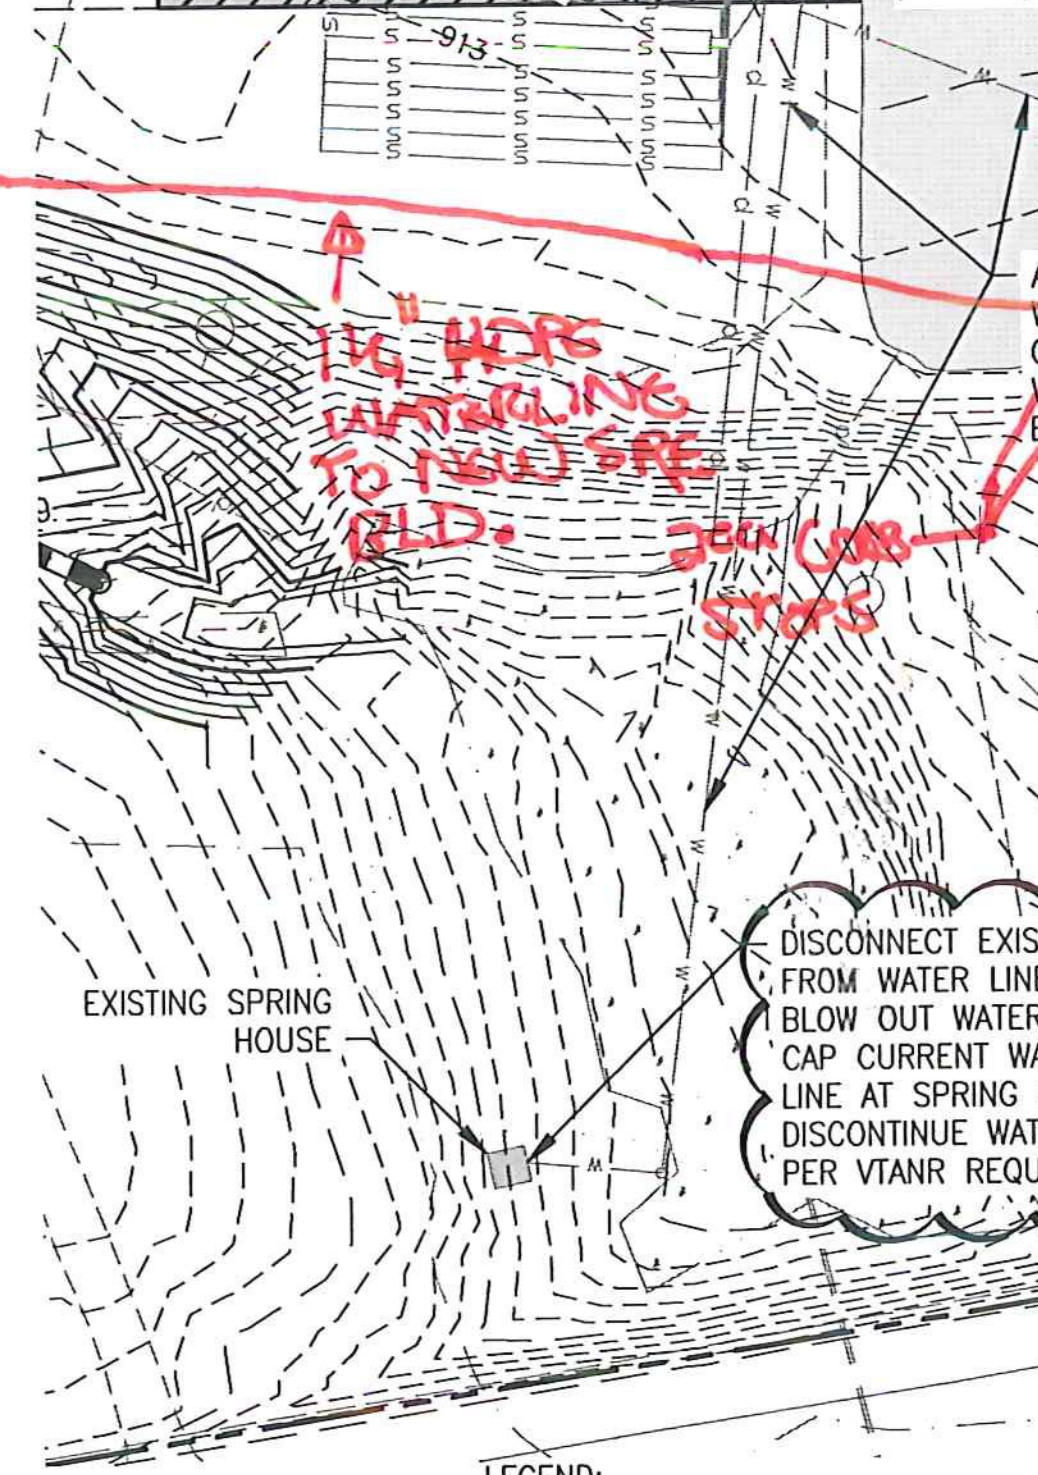 913
S S S
S S S
S S S
S S S
S S S
S S S
S S S
" HDPE
WATERLINE
TO NEW SPE
BLD.
STOPS
EXISTING SPRING
HOUSE
DISCONNECT EXIS
FROM WATER LINE
BLOW OUT WATER
CAP CURRENT WA
LINE AT SPRING
DISCONTINUE WAT
PER VTANR REQU
W
LEGEND: